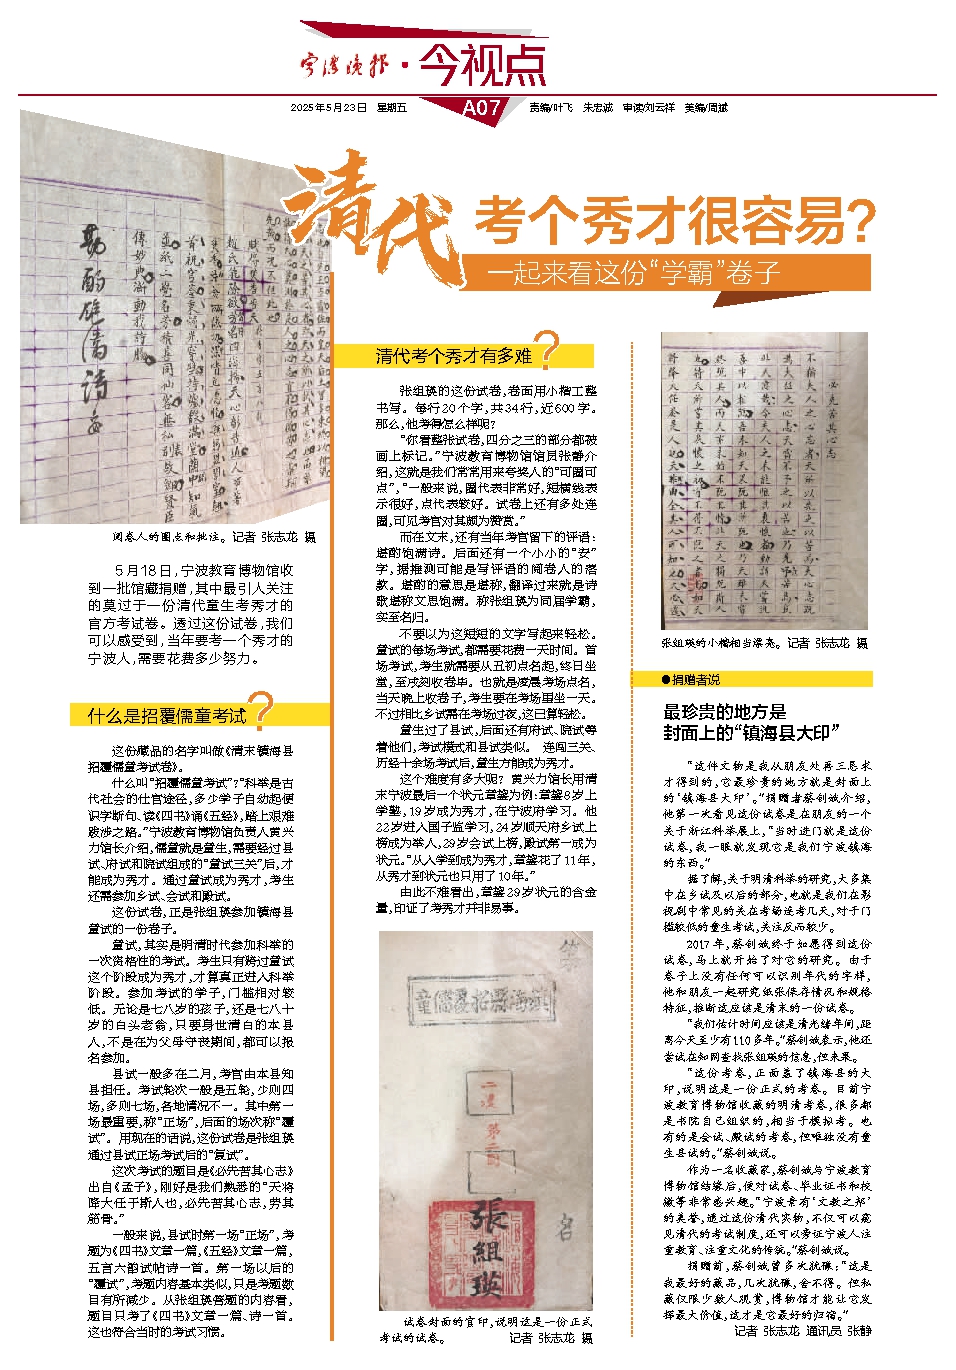 宁波晚报·今视点
2025年5月23日 星期五
A07
责编/叶飞 朱忠诚 审读/刘云祥 美编/周斌
清代
考个秀才很容易?
一起来看这份“学霸”卷子
阅卷人的圈点和批注。记者 张志龙 摄
5月18日,宁波教育博物馆收
到一批馆藏捐赠,其中最引人关注
的莫过于一份清代童生考秀才的
官方考试卷。透过这份试卷,我们
可以感受到,当年要考一个秀才的
宁波人,需要花费多少努力。
什么是招覆儒童考试?
这份藏品的名字叫做《清末镇海县
招覆儒童考试卷》。
什么叫“招覆儒童考试”?“科举是古
代社会的仕官途径,多少学子自幼起便
识字断句、读《四书》诵《五经》,踏上艰难
跋涉之路。”宁波教育博物馆负责人黄兴
力馆长介绍,儒童就是童生,需要经过县
试、府试和院试组成的“童试三关”后,才
能成为秀才。通过童试成为秀才,考生
还需参加乡试、会试和殿试。
这份试卷,正是张组瑛参加镇海县
童试的一份卷子。
童试,其实是明清时代参加科举的
一次资格性的考试。考生只有跨过童试
这个阶段成为秀才,才算真正进入科举
阶段。参加考试的学子,门槛相对较
低。无论是七八岁的孩子,还是七八十
岁的白头老翁,只要身世清白的本县
人,不是在为父母守丧期间,都可以报
名参加。
县试一般多在二月,考官由本县知
县担任。考试轮次一般是五轮,少则四
场,多则七场,各地情况不一。其中第一
场最重要,称“正场”,后面的场次称“覆
试”。用现在的话说,这份试卷是张组瑛
通过县试正场考试后的“复试”。
这次考试的题目是《必先苦其心志》
出自《孟子》,刚好是我们熟悉的“天将
降大任于斯人也,必先苦其心志,劳其
筋骨。”
一般来说,县试时第一场“正场”,考
题为《四书》文章一篇,《五经》文章一篇,
五言六韵试帖诗一首。第一场以后的
“覆试”,考题内容基本类似,只是考题数
目有所减少。从张组瑛答题的内容看,
题目只考了《四书》文章一篇、诗一首。
这也符合当时的考试习惯。
清代考个秀才有多难?
张组瑛的这份试卷,卷面用小楷工整
书写。每行20个字,共34行,近600字。
那么,他考得怎么样呢?
“你看整张试卷,四分之三的部分都被
画上标记。”宁波教育博物馆馆员张静介
绍,这就是我们常常用来夸奖人的“可圈可
点”,“一般来说,圈代表非常好,短横线表
示很好,点代表较好。试卷上还有多处连
圈,可见考官对其颇为赞赏。”
而在文末,还有当年考官留下的评语:
堪酌饱满诗。后面还有一个小小的“安”
字,据推测可能是写评语的阅卷人的落
款。堪酌的意思是堪称,翻译过来就是诗
歌堪称文思饱满。称张组瑛为同届学霸,
实至名归。
不要以为这短短的文字写起来轻松。
童试的每场考试,都需要花费一天时间。首
场考试,考生就需要从丑初点名起,终日坐
堂,至戌刻收卷毕。也就是凌晨考场点名,
当天晚上收卷子,考生要在考场里坐一天。
不过相比乡试需在考场过夜,这已算轻松。
童生过了县试,后面还有府试、院试等
着他们,考试模式和县试类似。 连闯三关、
历经十余场考试后,童生方能成为秀才。
这个难度有多大呢?黄兴力馆长用清
末宁波最后一个状元章鋆为例:章鋆8岁上
学塾,19岁成为秀才,在宁波府学习。他
22岁进入国子监学习,24岁顺天府乡试上
榜成为举人,29岁会试上榜,殿试第一成为
状元。”从入学到成为秀才,章鋆花了11年,
从秀才到状元也只用了10年。”
由此不难看出,章鋆29岁状元的含金
量,印证了考秀才并非易事。
鎮海縣招覆儒童
張組瑛
试卷封面的官印,说明这是一份正式
考试的试卷。 记者 张志龙 摄
必先苦其心志
张组瑛的小楷相当漂亮。记者 张志龙 摄
●捐赠者说
最珍贵的地方是
封面上的“镇海县大印”
“这件文物是我从朋友处再三恳求
才得到的,它最珍贵的地方就是封面上
的‘镇海县大印’。”捐赠者蔡剑斌介绍,
他第一次看见这份试卷是在朋友的一个
关于浙江科举展上,“当时进门就是这份
试卷,我一眼就发现它是我们宁波镇海
的东西。”
据了解,关于明清科举的研究,大多集
中在乡试及以后的部分,也就是我们在影
视剧中常见的关在考场连考几天,对于门
槛较低的童生考试,关注反而较少。
2017年,蔡剑斌终于如愿得到这份
试卷,马上就开始了对它的研究。由于
卷子上没有任何可以识别年代的字样,
他和朋友一起研究纸张保存情况和规格
特征,推断这应该是清末的一份试卷。
“我们估计时间应该是清光绪年间,距
离今天至少有110多年。”蔡剑斌表示,他还
尝试在知网查找张组瑛的信息,但未果。
“这份考卷,正面盖了镇海县的大
印,说明这是一份正式的考卷。目前宁
波教育博物馆收藏的明清考卷,很多都
是书院自己组织的,相当于模拟考。也
有的是会试、殿试的考卷,但唯独没有童
生县试的。”蔡剑斌说。
作为一名收藏家,蔡剑斌与宁波教育
博物馆结缘后,便对试卷、毕业证书和校
徽等非常感兴趣。“宁波素有‘文教之邦’
的美誉,透过这份清代实物,不仅可以窥
见清代的考试制度,还可以旁证宁波人注
重教育、注重文化的传统。”蔡剑斌说。
捐赠前,蔡剑斌曾多次犹豫:“这是
我最好的藏品,几次犹豫,舍不得。但私
藏仅限少数人观赏,博物馆才能让它发
挥最大价值,这才是它最好的归宿。”
记者 张志龙 通讯员 张静